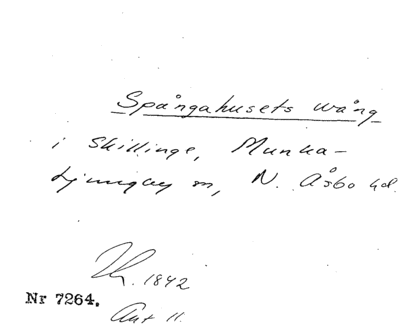 Spångahusets wång
i Skillinge, Munka-
Ljungby sn, N. Åsbo hd.
1842
Nr 7264.
Ant 11.